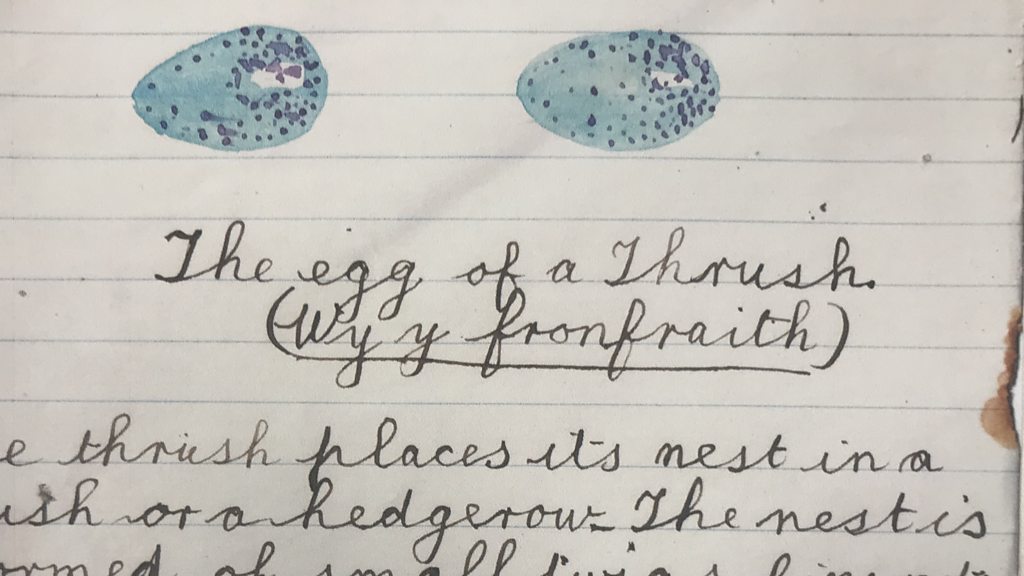 The egg of a Thrush.
(Wy y fronfraith)
e thrush places its nest in a
ush or a hedgerow. The nest is
ormed of small twigs